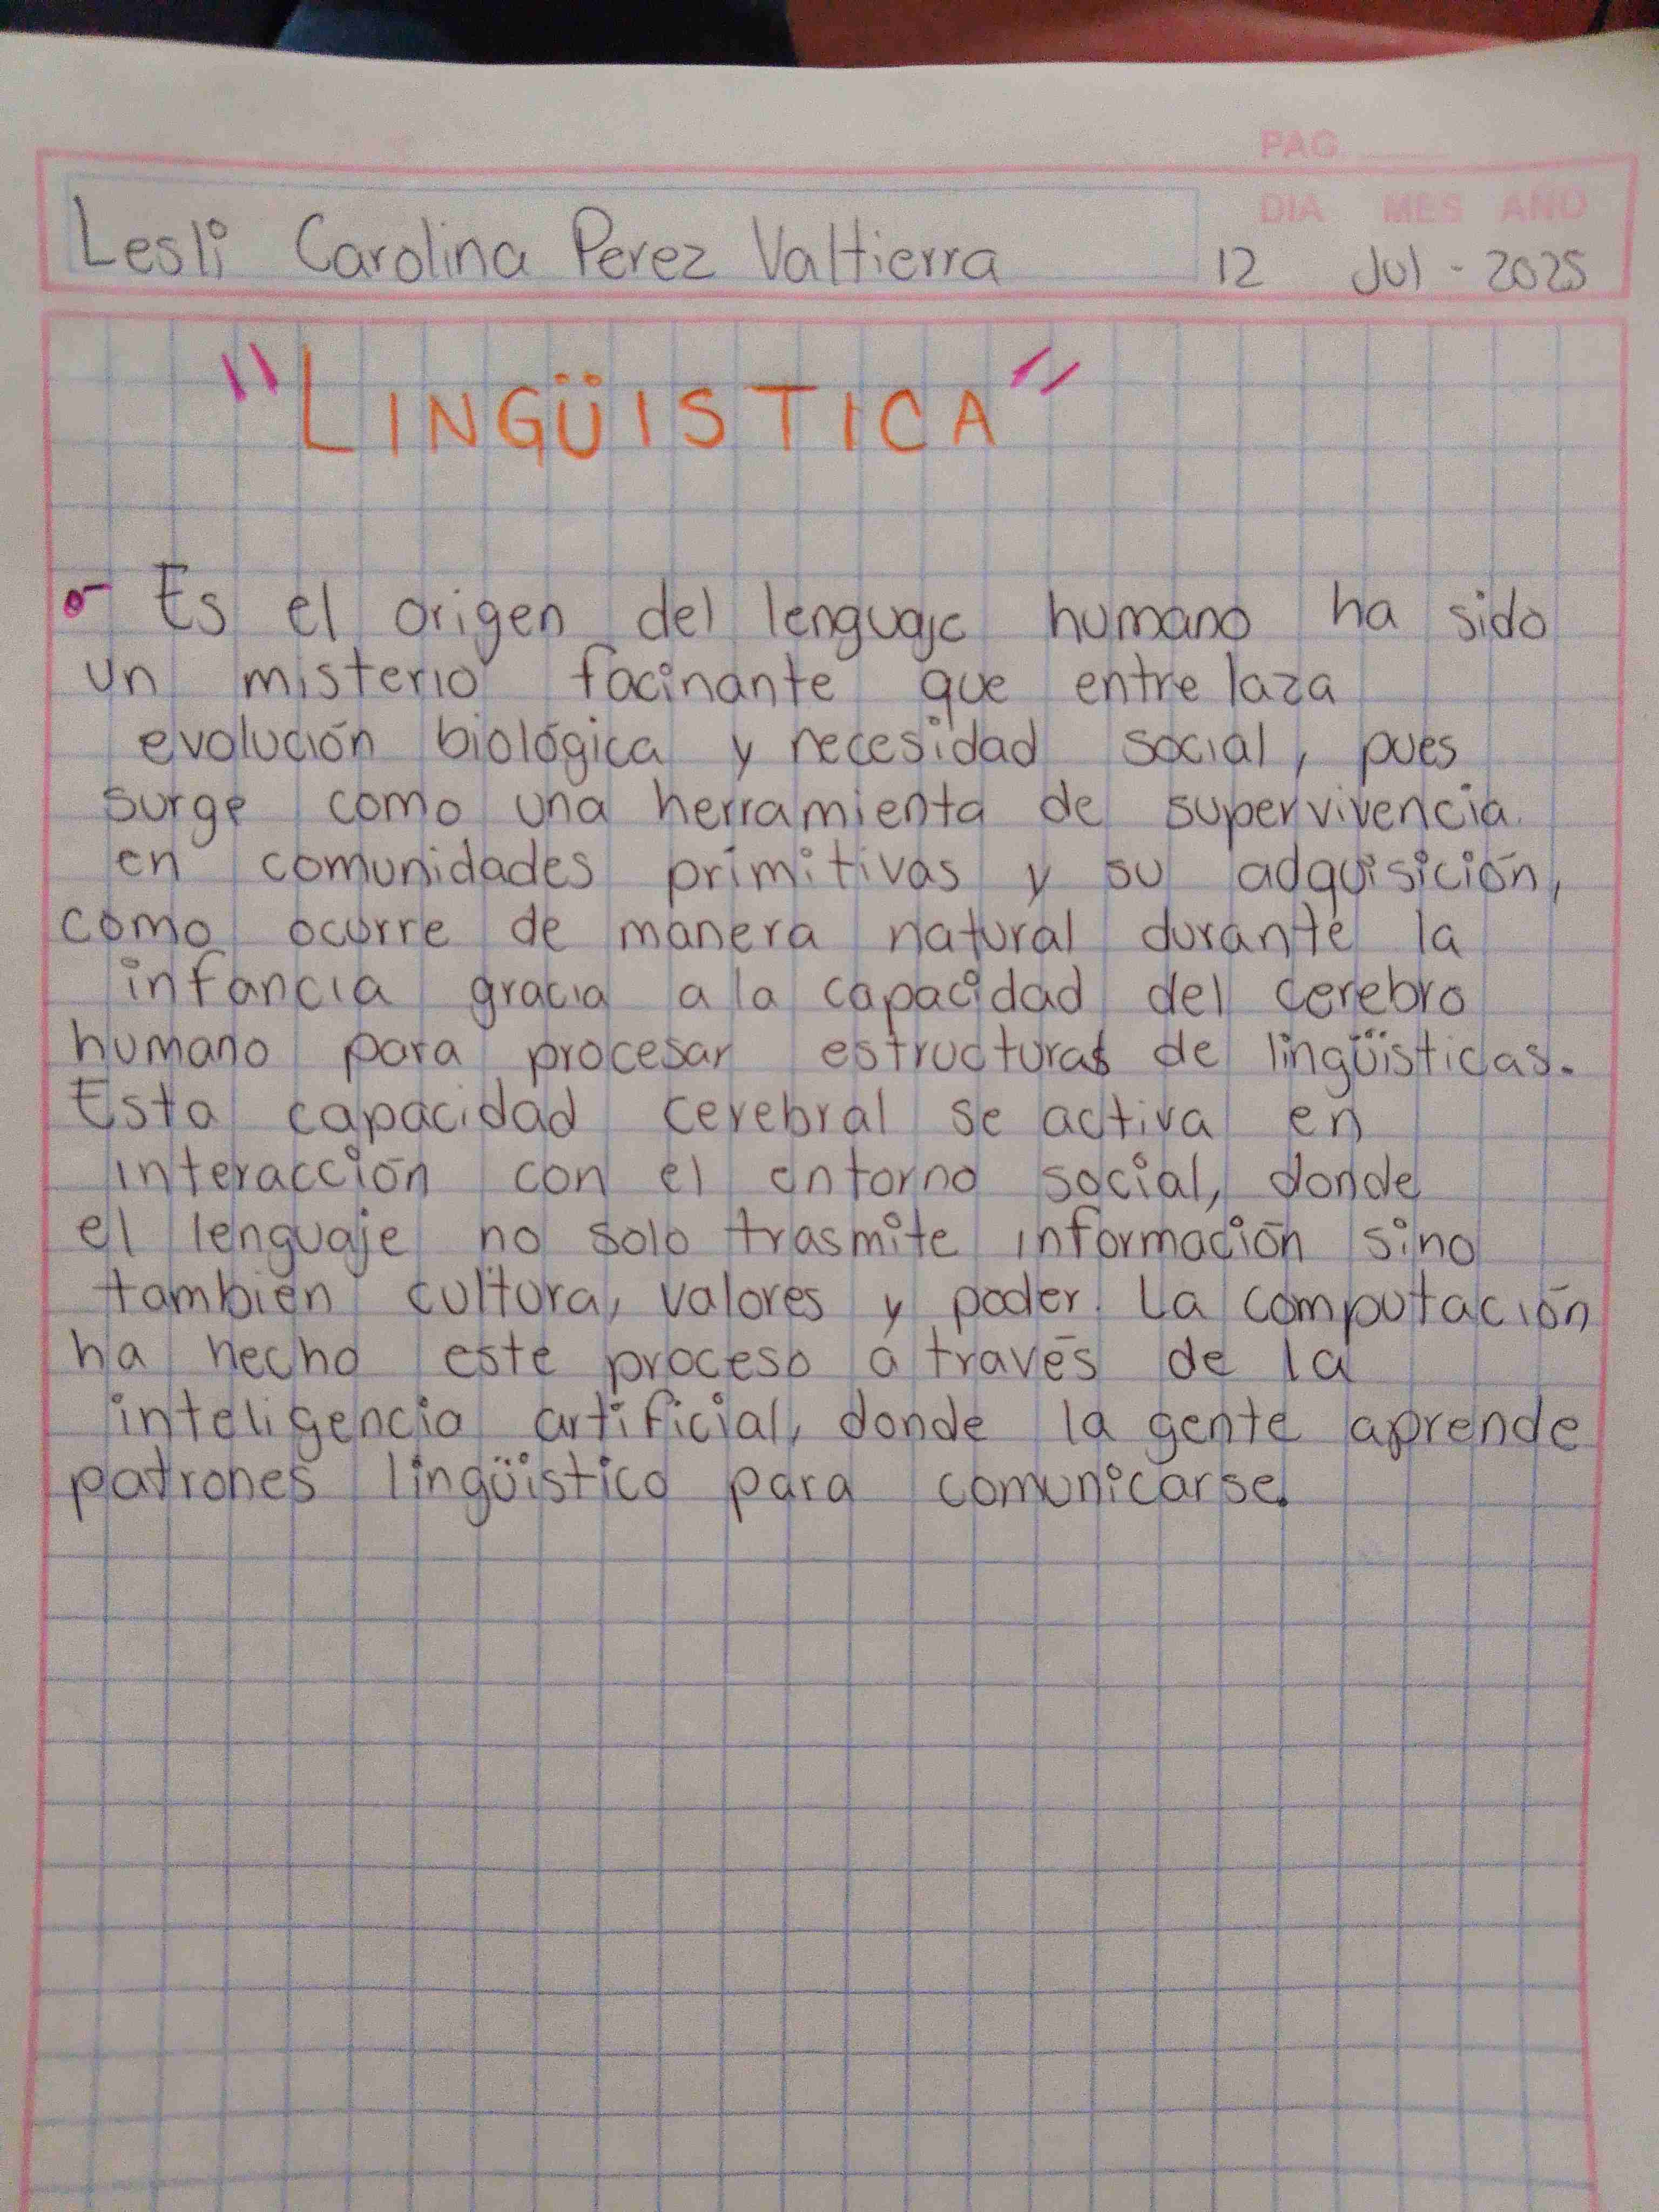 PAG
DIA MES AÑO
Lesli Carolina Perez Valtierra 12 Jul - 2025
"LINGÜISTICA"
Es el origen del lenguaje humano ha sido
un misterio facinante que entre laza
evolución biológica y necesidad social, pues
surge como una herramienta de supervivencia.
en comunidades primitivas y su adquisición,
como ocurre de manera natural durante la
infancia gracia a la capacidad del cerebro
humano para procesar estructuras de lingüisticas.
Esta capacidad cerebral se activa en
interacción con el entorno social, donde
el lenguaje no solo trasmite información sino
también cultura, valores y poder. La computación
ha hecho este proceso a través de la
inteligencia artificial, donde la gente aprende
patrones lingüistico para comunicarse.